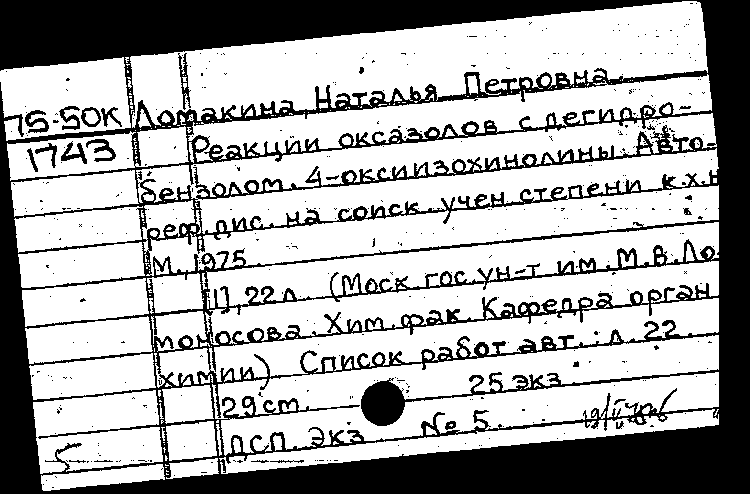 75-50К Ломакина, Наталья Петровна.
1743 Реакции оксазолов с дегидро-
бензолом. 4-оксиизохинолины. Авто-
реф. дис. на соиск. учен. степени к.х.н
М., 1975.
[1], 22 л. (Моск. гос. ун-т им. М. В. Ло
моносова. Хим. фак. Кафедра орган
химии). Список работ авт.: л. 22.
29 см. 25 экз.
ДСП. Экз № 5.